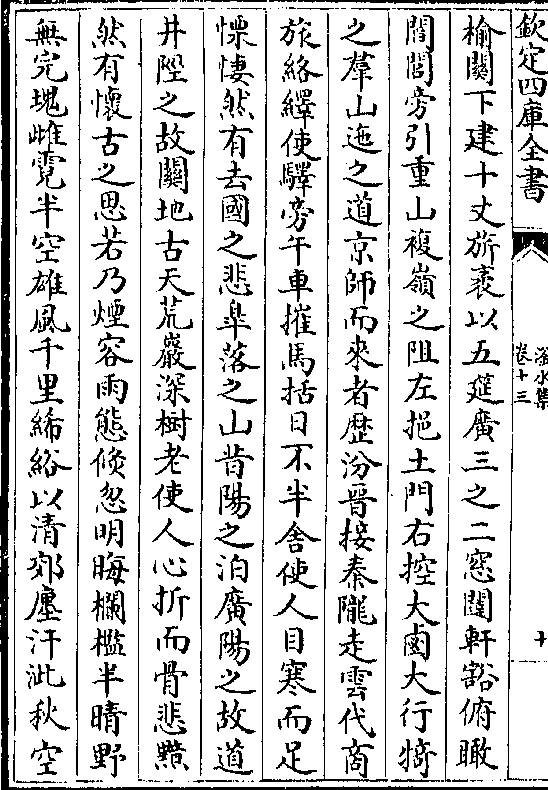 欽定四庫全書
滏水集
卷十三
十
榆關下建十丈旂袤以五筵廣三之二窓闥軒豁俯瞰
閭閻旁引重山複嶺之阻左挹土門右控大鹵大行犄
之羣山迤之道京師而來者歴汾晉接秦隴走雲代商
旅絡繹使驛旁午車摧馬括日不半舍使人目寒而足
慄悽然有去國之悲臯落之山昔陽之泊廣陽之故道
井陘之故關地古天荒巖深樹老使人心折而骨悲黯
然有懷古之思若乃煙容雨態倐忽明晦欄檻半晴野
無完塊雌霓半空雄風千里絺綌以清郊廛汗泚秋空